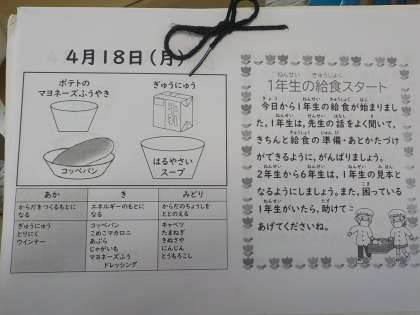 4月18日(月)
ポテトの
マヨネーズふうやき
ぎゅうにゅう
コッペパン
はるやさい
スープ
あか
き
みどり
からだをつくるもとに
なる
エネルギーのもとに
なる
からだのちょうしを
ととのえる
ぎゅうにゅう
とりにく
ウインナー
コッペパン
こめこマカロニ
あぶら
じゃがいも
マヨネーズふう
ドレッシング
キャベツ
たまねぎ
きぬさや
にんじん
とうもろこし
1年生の給食スタート
今日から1年生の給食が始まりまし
た。1年生は、先生の話をよく聞いて、
きちんと給食の準備・あとかたづけ
ができるように、がんばりましょう。
2年生から6年生は、1年生の見本と
なるようにしましょう。また、困っている
1年生がいたら、助けて
あげてくださいね。